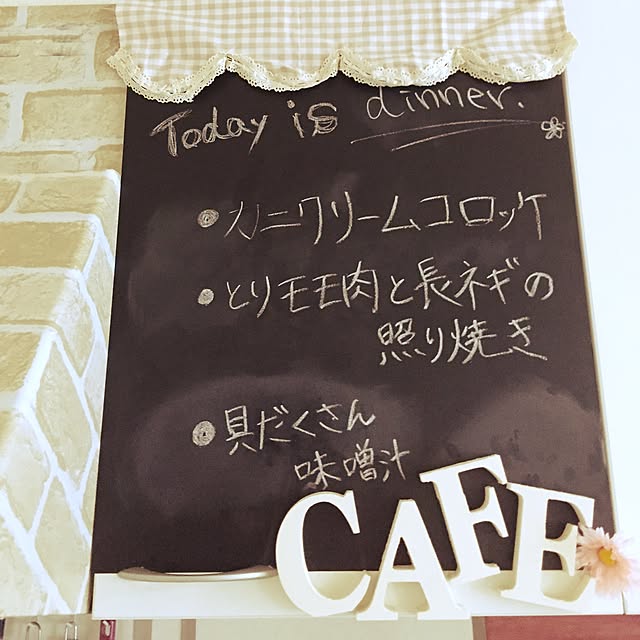 Today is dinner.
カニクリームコロッケ
とりモモ肉と長ネギの
照り焼き
具だくさん
味噌汁
CAFE